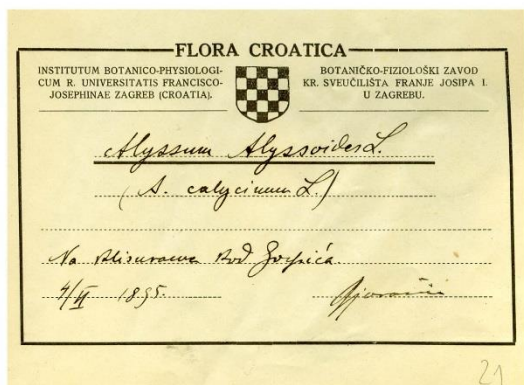 FLORA CROATICA
INSTITUTUM BOTANICO-PHYSIOLOGI-
CUM R. UNIVERSITATIS FRANCISCO-
JOSEPHINAE ZAGREB (CROATIA).
BOTANIČKO-FIZIOLOŠKI ZAVOD
KR. SVEUČILIŠTA FRANJE JOSIPA I.
U ZAGREBU.
Alyssum Alyssoides L.
(A. calycinum L.)
Na kod
1895.
21